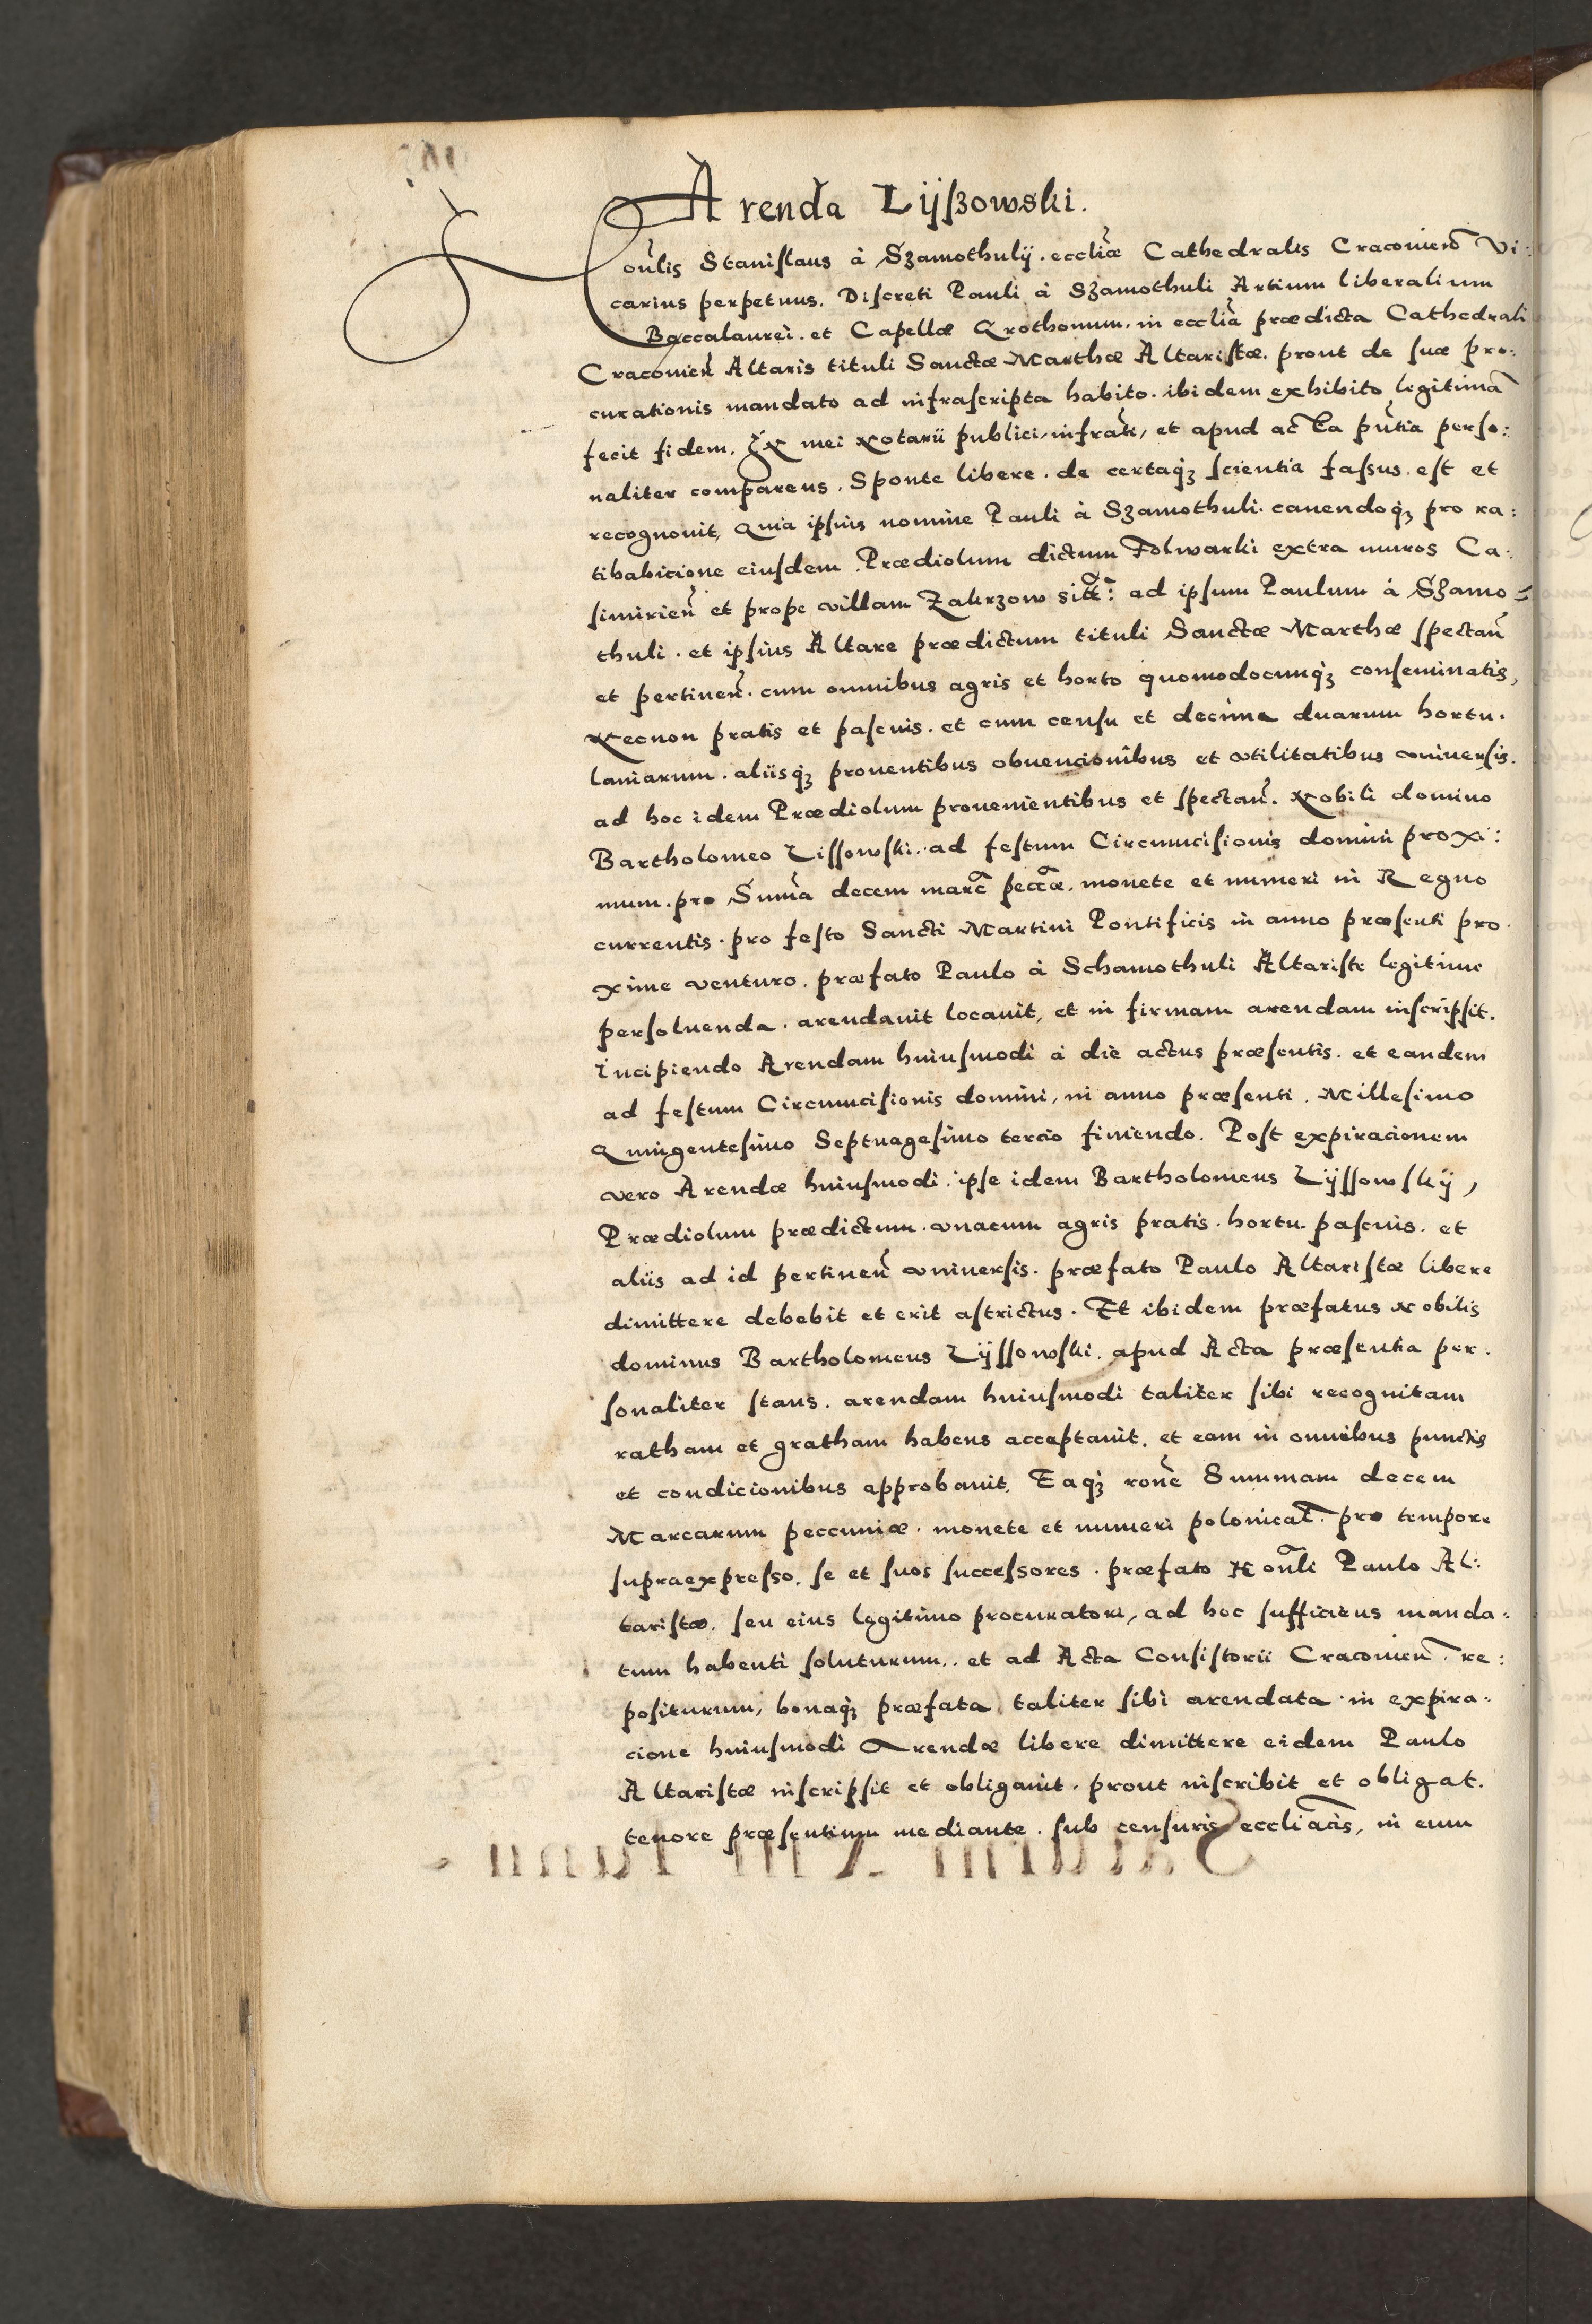 Arenda Lijſzowski.
Hoñlis Staniſlaus à Szamothulij. eccliæ Cathedralis Cracovieñ Vi:
carius perpetuus. Diſcreti Pauli à Szamothuli Artium liberalium
Baccalaurei. et Capellæ Grothonum. in ecclia prædicta Cathedrali
Cracovieñ Altaris tituli Sanctæ Marthæ Altariſtæ. prout de ſuæ pro:
curationis mandato ad infraſcripta habito. ibidem exhibito legitimā
fecit fidem. In mei Notarii publici, infrati, et apud acta pñtia perſo:
naliter comparens. Sponte libere. de certaqꝫ ſcientia faſsus eſt et
recognovit, Quia ipſius nomine Pauli à Szamothuli. cavendoqꝫ pro ra:
tihabicione eiuſdem. Prædiolum dictum Folwarki extra muros Ca:
ſimirieñ et prope villam Zakrzow sitt: ad ipſum Paulum à Szamo=
thuli. et ipſius Altare prædictum tituli Sanctæ Marthæ ſpectañ
et pertineñ. cum omnibus agris et horto quomodocunqꝫ conſeminatis,
Necnon pratis et paſcuis. et cum cenſu et decima duarum hortu.
laniarum. aliisqꝫ proventibus obvencionibus et vtilitatibus vniverſis.
ad hoc idem Prædiolum provenientibus et ſpectañ. Nobili domino
Bartholomeo Liſſowſki. ad feſtum Circumciſionis domini proxi:
mum. pro Suma decem marc̄ peccæ. monete et numeri in Regno
currentis. pro feſto Sancti Martini Pontificis in anno præſenti pro.
xime venturo. præfato Paulo à Schamothuli Altariſte legitime
perſolvenda. arendavit locavit, et in firmam arendam inſcripſit.
Incipiendo Arendam huiuſmodi à die actus præſentis. et eandem
ad feſtum Circumciſionis domini, in anno præſenti. Milleſimo
Quingenteſimo Septuageſimo tercio finiendo. Poſt expiracionem
vero Arendæ huiuſmodi. ipſe idem Bartholomeus Lijſſowſkij,
Prædiolum prædictum. vnacum agris pratis. hortu. paſcuis. et
aliis ad id pertineñ vniverſis. præfato Paulo Altariſtæ libere
dimittere debebit et erit aſtrictus. Et ibidem præfatus Nobilis
dominus Bartholomeus Lijſſowſki. apud Acta præſentia per.
ſonaliter ſtans. arendam huiuſmodi taliter ſibi recognitam
ratham et gratham habens acceptavit. et eam in omnibus punctis
et condicionibus approbavit. Eaqꝫ rone Summam decem
Marcarum peccuniæ. monete et numeri polonical̄. pro tempore
ſupraexpreſso. ſe et ſuos ſucceſsores. præfato Hoñli Paulo Al:
tariſtæ. ſeu eius legitimo procuratori, ad hoc ſufficiens manda:
tum habenti ſoluturum.. et ad Acta Conſiſtorii Cracovieñ. re:
poſiturum, bonaqꝫ præfata taliter ſibi arendata. in expira.
cione huiuſmodi Arendæ libere dimittere eidem Paulo
Altariſtæ inſcripſit et obligavit. prout inſcribit et obligat.
tenore præſentium mediante. ſub cenſuris eccliacis, in eum